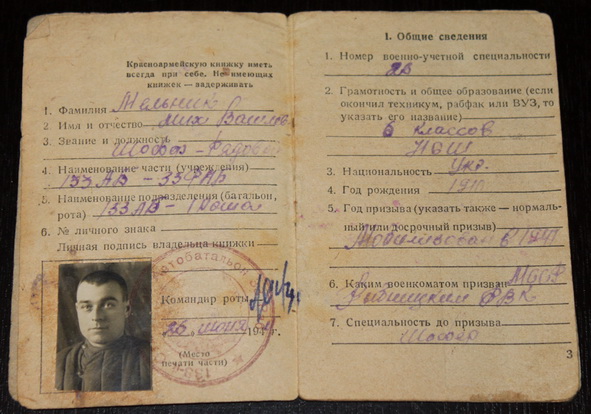 Красноармейскую книжку иметь
всегда при себе. Не имеющих
книжек — задерживать
1. Фамилия Мельник
2. Имя и отчество Мих Васил
3. Звание и должность
Шофер - Рядовой
4. Наименование части (учреждения)
133 АБ -
5. Наименование подразделения (батальон,
рота) 133 АБ - 1
6. № личного знака
Личная подпись владельца книжки
Командир роты
26 июня 194 г.
(Место
печати части)
1. Общие сведения
1. Номер военно-учетной специальности
2. Грамотность и общее образование (если
окончил техникум, рабфак или ВУЗ, то
указать его название)
6 классов
3. Национальность Укр.
4. Год рождения 1910
5. Год призыва (указать также — нормаль-
ный или досрочный призыв)
Мобилизован в 1941
6. Каким военкоматом призван МССР
Рыбницким РВК
7. Специальность до призыва
Шофер
3